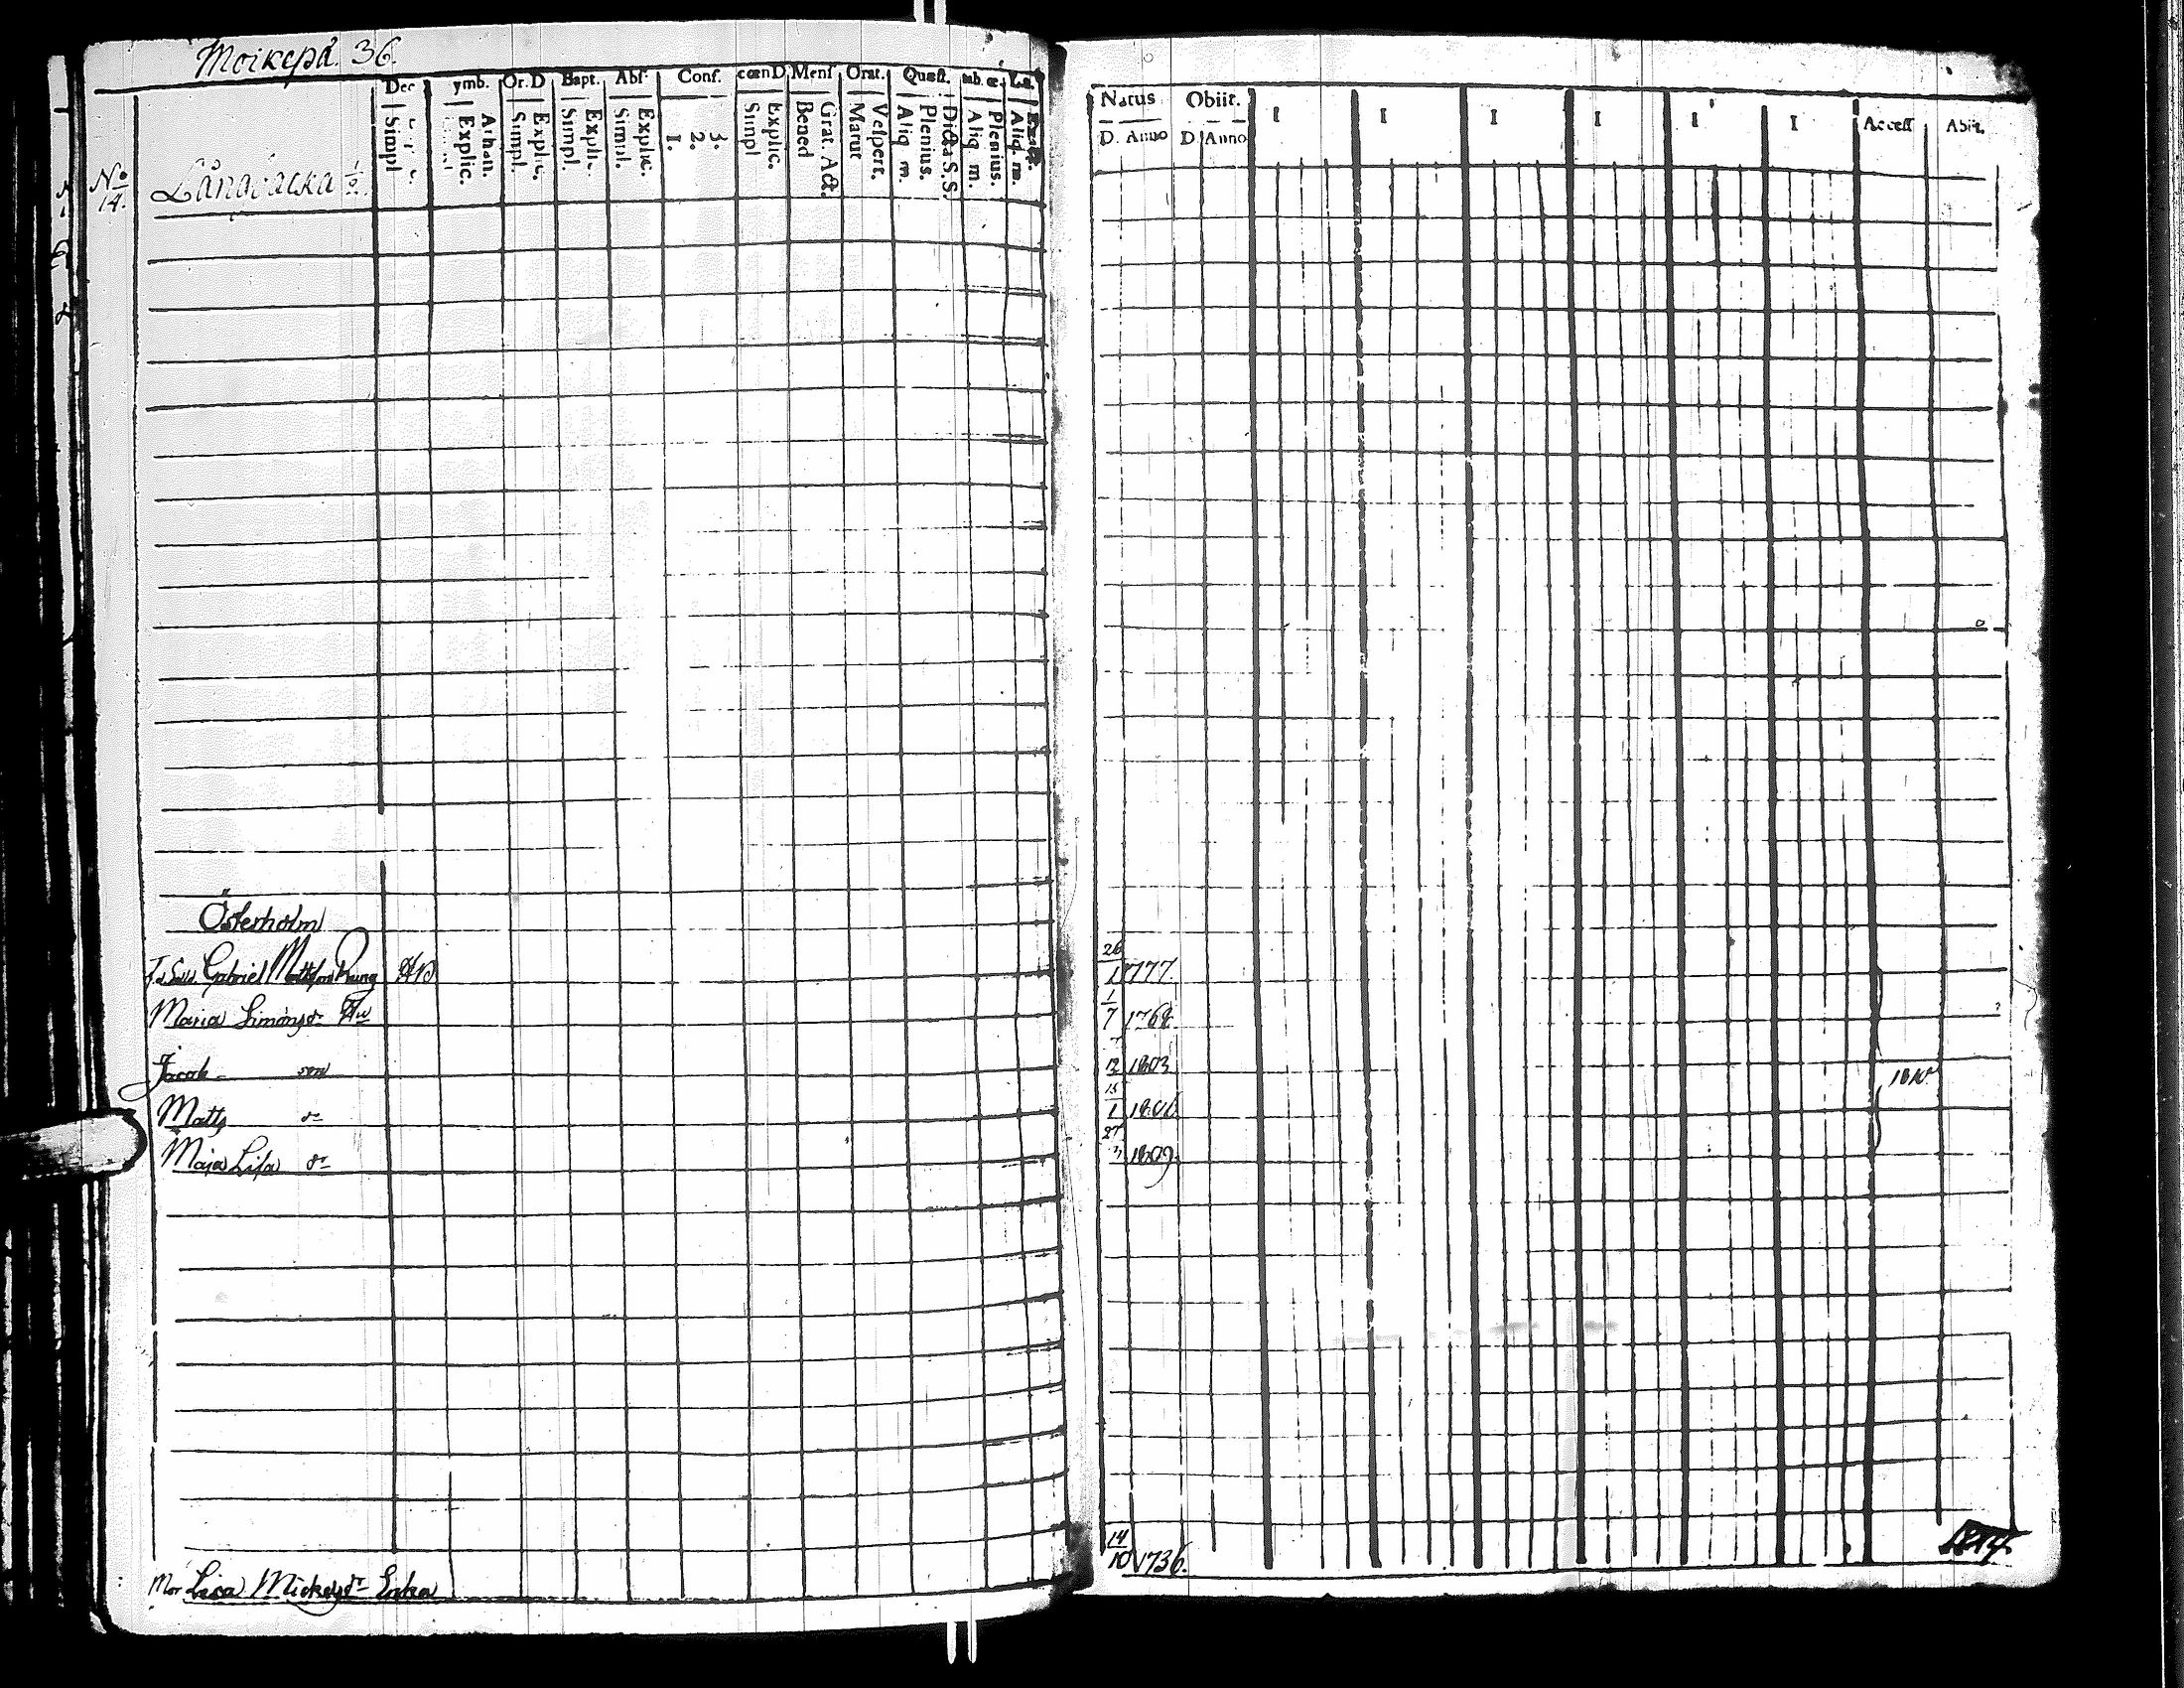 Moikepä 36.
Dec ymb. Or.D Bapt. Abs. Conf. cœnD Menſ Orat. Quæſt. tab. œ.
Simpl Explic. Athan. Simpl. Expl. Simpl. Explic. Simpl. Explic. 1. 2. 3. Simpl Explic. Bened Grat. Act. Matut Veſpert. Aliq m. Plenius. Dicta S.S. Aliq m. Plenius. Aliq. m.
No 14. Långbacka ½
Österholm
Gabriel Mattsson
Maria Simonsdr Hu
Jacob son
Matts dr
Maja Lisa dr
Mor Lisa Mickelsdr Enka
Natus Obiit. I I I I I I Acceſſ Abiit.
D. Anno D. Anno
26/1 1777.
1/7 1768
1803
1810
15/1
27/3 1809.
14/10 1736.